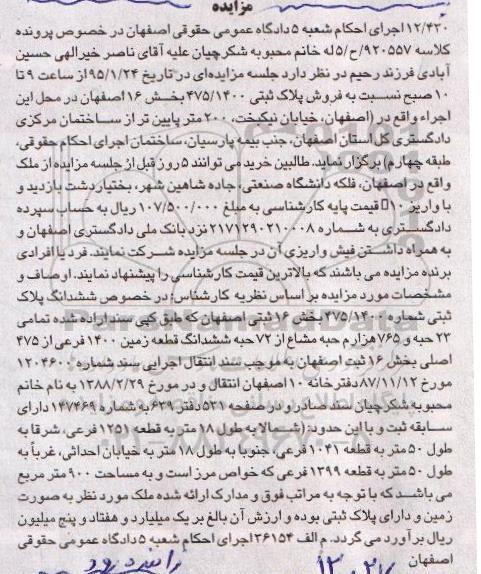 مزایده
۱۲/۴۳۰ اجرای احکام شعبه ۵ دادگاه عمومی حقوقی اصفهان در خصوص پرونده
کلاسه ۹۲۰۵۵۷/ح/۵ له خانم محبوبه شکرچیان علیه آقای ناصر خیرالهی حسین
آبادی فرزند رحیم در نظر دارد جلسه مزایده‌ای در تاریخ ۹۵/۱/۲۴ از ساعت ۹ تا
۱۰ صبح نسبت به فروش پلاک ثبتی ۴۷۵/۱۴۰۰ بخش ۱۶ اصفهان در محل این
اجراء واقع در (اصفهان، خیابان نیکبخت، ۲۰۰ متر پایین تر از ساختمان مرکزی
دادگستری کل استان اصفهان، جنب بیمه پارسیان، ساختمان اجرای احکام حقوقی،
طبقه چهارم) برگزار نماید. طالبین خرید می توانند ۵ روز قبل از جلسه مزایده از ملک
واقع در اصفهان، فلکه دانشگاه صنعتی، جاده شاهین شهر، بختیاردشت بازدید و
با واریز ۱۰٪ قیمت پایه کارشناسی به مبلغ ۱۰۷/۵۰۰/۰۰۰ ریال به حساب سپرده
دادگستری به شماره ۲۱۷۱۲۹۰۲۱۰۰۰۸ نزد بانک ملی دادگستری اصفهان و
به همراه داشتن فیش واریزی آن در جلسه مزایده شرکت نمایند. فرد یا افرادی
برنده مزایده می باشند که بالاترین قیمت کارشناسی را پیشنهاد نمایند. اوصاف و
مشخصات مورد مزایده بر اساس نظریه کارشناس: در خصوص ششدانگ پلاک
ثبتی شماره ۴۷۵/۱۴۰۰ بخش ۱۶ ثبتی اصفهان که طبق کپی سند اراده شده تمامی
۲۳ حبه و ۷۶۵ هزارم حبه مشاع از ۷۲ حبه ششدانگ قطعه زمین ۱۴۰۰ فرعی از ۴۷۵
اصلی بخش ۱۶ ثبت اصفهان به موجب سند انتقال اجرایی سند شماره ۱۲۰۴۶۰۰
مورخ ۸۷/۱۱/۱۲ دفترخانه ۱۵ اصفهان انتقال و در مورخ ۱۳۸۸/۲/۲۹ به نام خانم
محبوبه شکرچیان سند صادر و در صفحه ۵۳۱ دفتر ۶۳۹ به شماره ۱۴۷۴۶۹ دارای
سابقه ثبت و با این حدود: (شمالا به طول ۱۸ متر به قطعه ۱۲۵۱ فرعی، شرقا به
طول ۵۰ متر به قطعه ۱۰۴۱ فرعی، جنوبا به طول ۱۸ متر به خیابان احداثی، غرباً به
طول ۵۰ متر به قطعه ۱۳۹۹ فرعی که خواص مرز است و به مساحت ۹۰۰ متر مربع
می باشد که با توجه به مراتب فوق و مدارک ارائه شده ملک مورد نظر به صورت
زمین و دارای پلاک ثبتی بوده و ارزش آن بالغ بر یک میلیارد و هفتاد و پنج میلیون
ریال برآورد می گردد. م الف ۳۶۱۵۴ اجرای احکام شعبه ۵ دادگاه عمومی حقوقی
اصفهان
زاینده رود